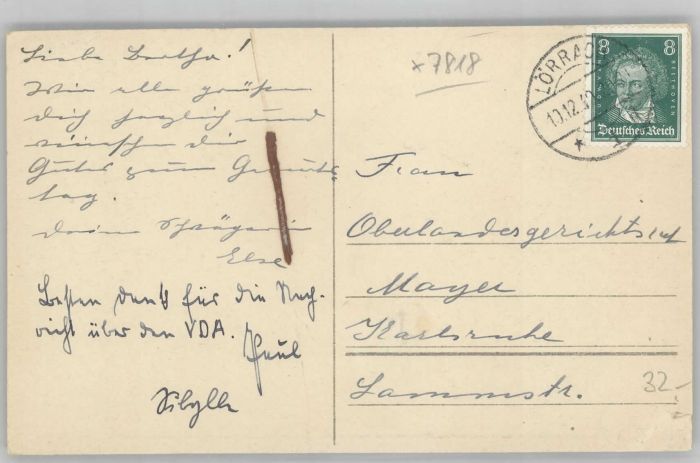 Liebe Bertha!
Wir alle grüßen
dich herzlich und
wünschen dir
Gutes zum Geburts-
tag.
Deine Schwägerin
Else
Besten Dank für die Nach-
richt über den VDA.
Paul
Sibylle
*7818
LÖRRACH
10.12.
8 8
BEETHOVEN
Deutsches Reich
Frau
Oberlandesgerichtsrat
Mayer
Karlsruhe
Lammstr.
32.-